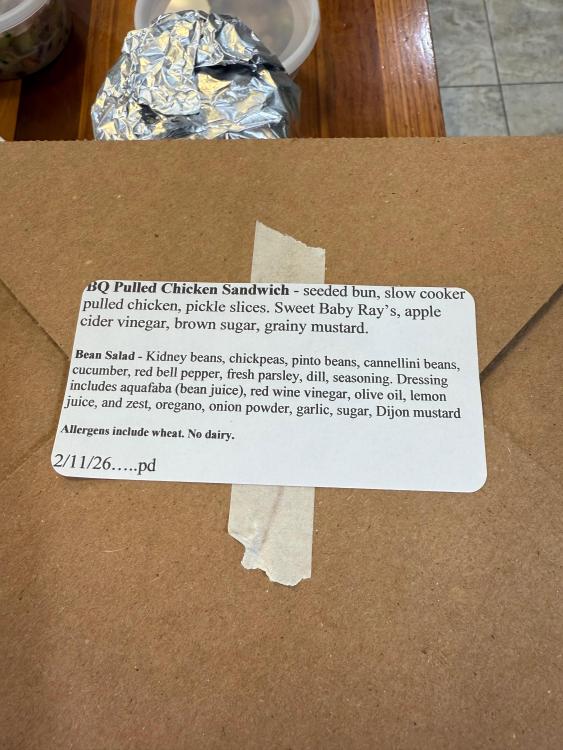 BQ Pulled Chicken Sandwich - seeded bun, slow cooker
pulled chicken, pickle slices. Sweet Baby Ray's, apple
cider vinegar, brown sugar, grainy mustard.
Bean Salad - Kidney beans, chickpeas, pinto beans, cannellini beans,
cucumber, red bell pepper, fresh parsley, dill, seasoning. Dressing
includes aquafaba (bean juice), red wine vinegar, olive oil, lemon
juice, and zest, oregano, onion powder, garlic, sugar, Dijon mustard
Allergens include wheat. No dairy.
2/11/26.....pd